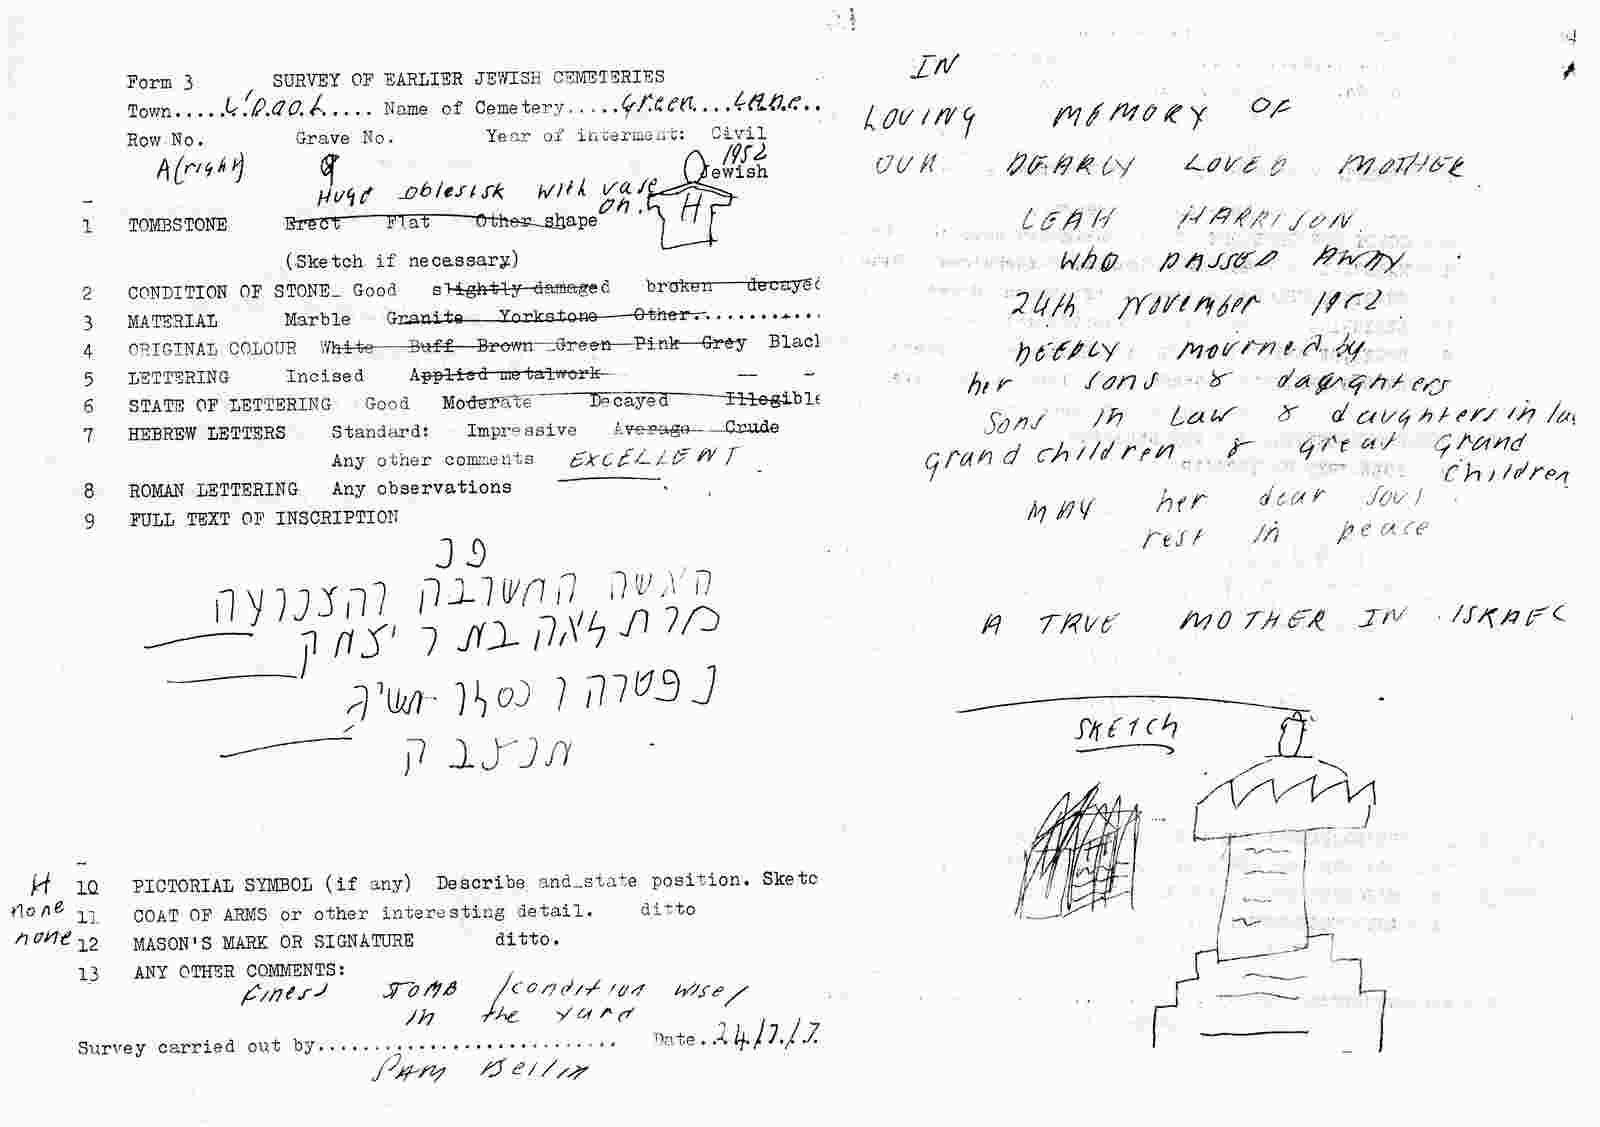 Form 3 SURVEY OF EARLIER JEWISH CEMETERIES
Town.....L'pool..... Name of Cemetery.....Green....Lane..
Row No. Grave No. Year of interment: Civil
1952
A(right) 9 Jewish
Huge oblesisk with vase
on.
H
1 TOMBSTONE Erect Flat Other shape
(Sketch if necessary)
2 CONDITION OF STONE_ Good slightly damaged broken decayed
3 MATERIAL Marble Granite Yorkstone Other............
4 ORIGINAL COLOUR White Buff Brown Green Pink Grey Blac
5 LETTERING Incised Applied metalwork
6 STATE OF LETTERING Good Moderate Decayed Illegible
7 HEBREW LETTERS Standard: Impressive Average Crude
Any other comments EXCELLENT.
8 ROMAN LETTERING Any observations
9 FULL TEXT OF INSCRIPTION
פנ
האשה החשובה והצנועה
מרת לאה בת ר יצחק
נפטרה ו כסלו תשי'ג
תנצבה
H 10 PICTORIAL SYMBOL (if any) Describe and_state position. Sketc
none 11 COAT OF ARMS or other interesting detail. ditto
none 12 MASON'S MARK OR SIGNATURE ditto.
13 ANY OTHER COMMENTS:
Finest TOMB /condition wise/
in the yard
Survey carried out by........................... Date.24/7./7.
PAM Beilin
IN
LOVING MEMORY OF
OUR DEARLY LOVED MOTHER
LEAH HARRISON.
WHO PASSED AWAY
24th November 1952
DEEPLY mourned by
her sons & daughters
Sons in Law & daughters in la
grand children & great grand
children
may her dear soul
rest in peace
A TRUE MOTHER IN ISRAEL
SKETCH